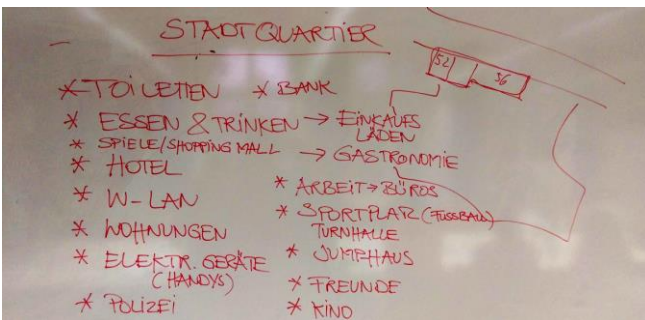 STADTQUARTIER
* TOILETTEN
* ESSEN & TRINKEN → EINKAUFS LÄDEN
* SPIELE/SHOPPING MALL → GASTRONOMIE
* HOTEL
* W-LAN
* WOHNUNGEN
* ELEKTR. GERÄTE
(HANDYS)
* POLIZEI
* BANK
* ARBEIT → BÜROS
* SPORTPLATZ (FUSSBALL)
TURNHALLE
* JUMPHAUS
* FREUNDE
* KINO
52
56